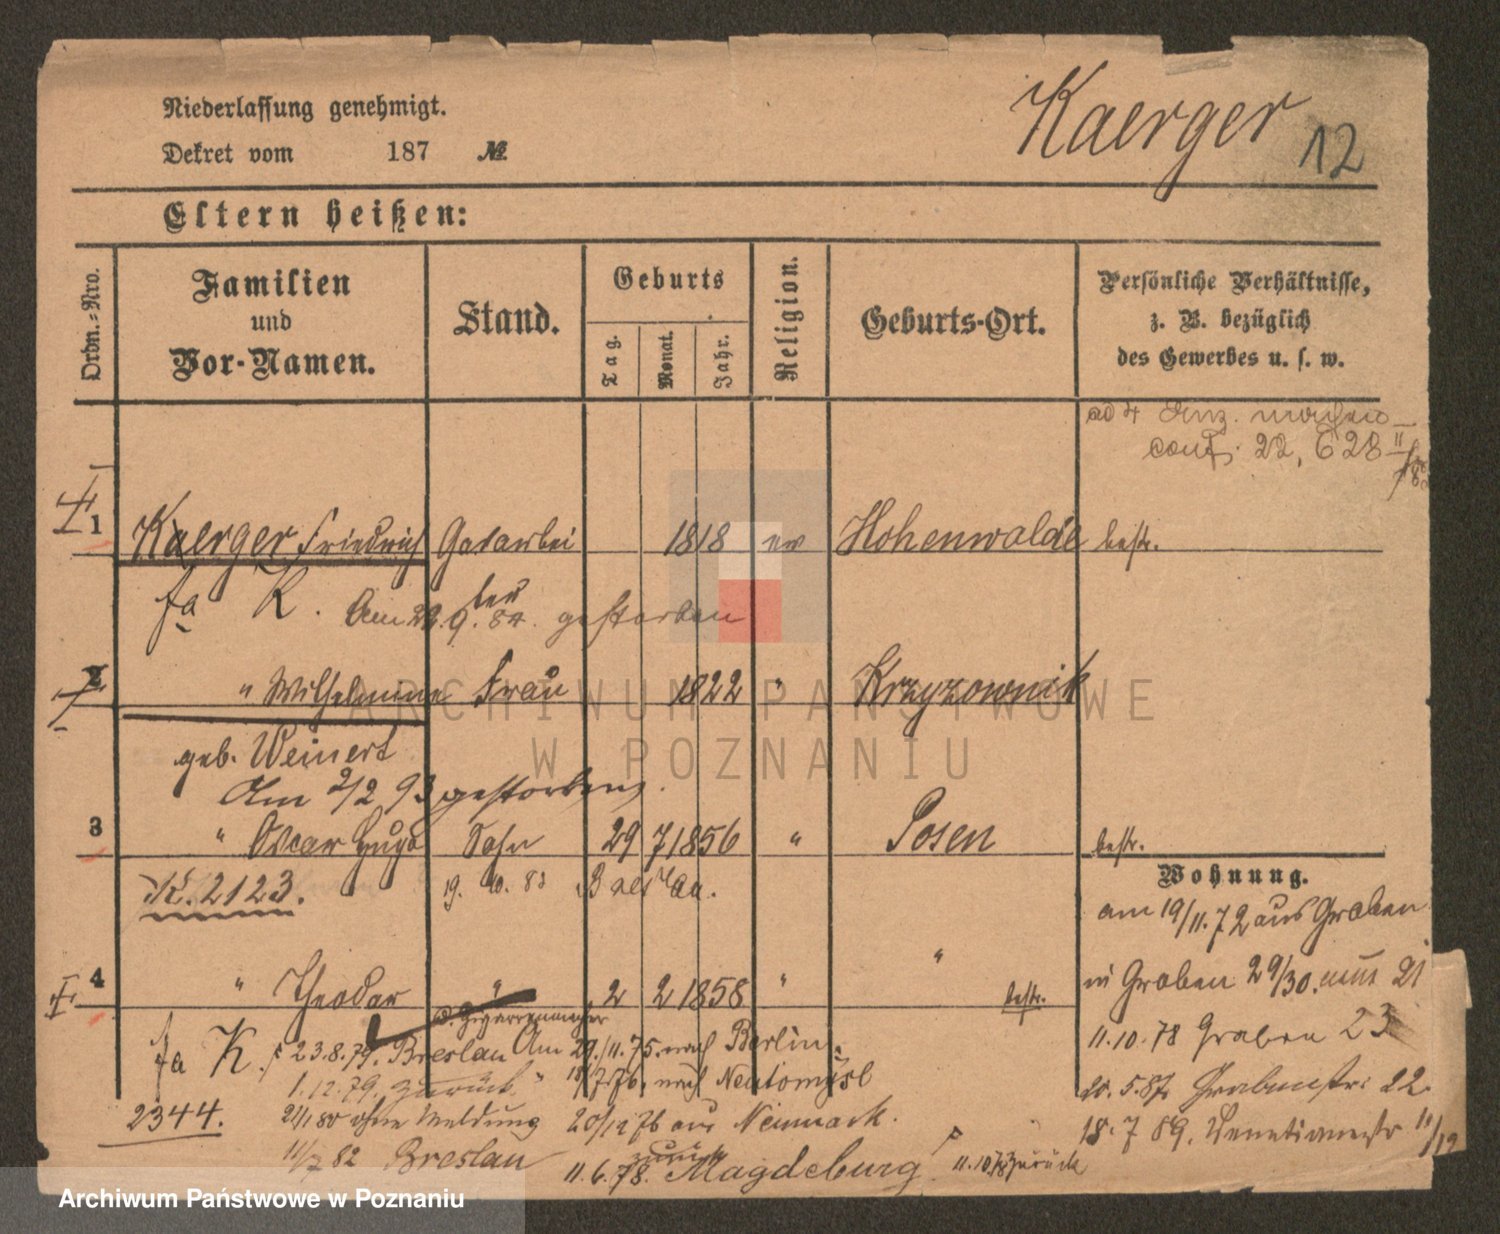 Niederlassung genehmigt.
Dekret vom 187 №
Kaerger 12
Eltern heißen:
Ordn.-Nro.
Familien
und
Vor-Namen.
Stand.
Geburts
Tag.
Monat.
Jahr.
Religion.
Geburts-Ort.
Persönliche Verhältnisse,
z. B. bezüglich
des Gewerbes u. s. w.
ad 4
conf. 22, 628
1 Kaerger Friedrich 1818 ev Hohenwalde bestr.
fa K. Am 9. 84. gestorben
2 " Wilhelmine Frau 1822 " Krzyzownik
geb. Weinert
Am 2/2 93 gestorben.
3 " Oscar Hugo Sohn 29 7 1856 " Posen bestr.
K. 2123. 19. 10. 83 Breslau.
Wohnung.
am 19/11.72 aus Graben
4 " Theodor " 2 2 1858 " " bestr.
in Graben 29/30. 21
fa K. 23.8.79. Breslau Am 29./11.75. nach Berlin.
11.10.78 Graben 23
1.12.79. zurück 7.76. nach Neutomysl
20.5.87 22.
2344. ohne Meldung 20/12 76 aus Neumark.
18.7 89. Venetianerstr 11/12
11/7 82 Breslau 11.6.78. Magdeburg 11.10.78 zurück
zurück
ARCHIWUM PAŃSTWOWE
W POZNANIU
Archiwum Państwowe w Poznaniu